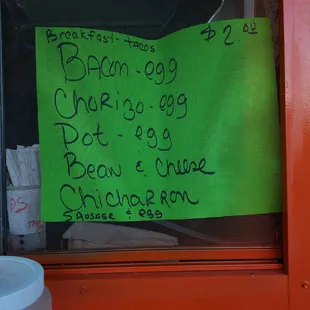 Breakfast - tacos $2.00
Bacon - egg
Chorizo - egg
Pot - egg
Bean & Cheese
Chicharron
Sausage & egg